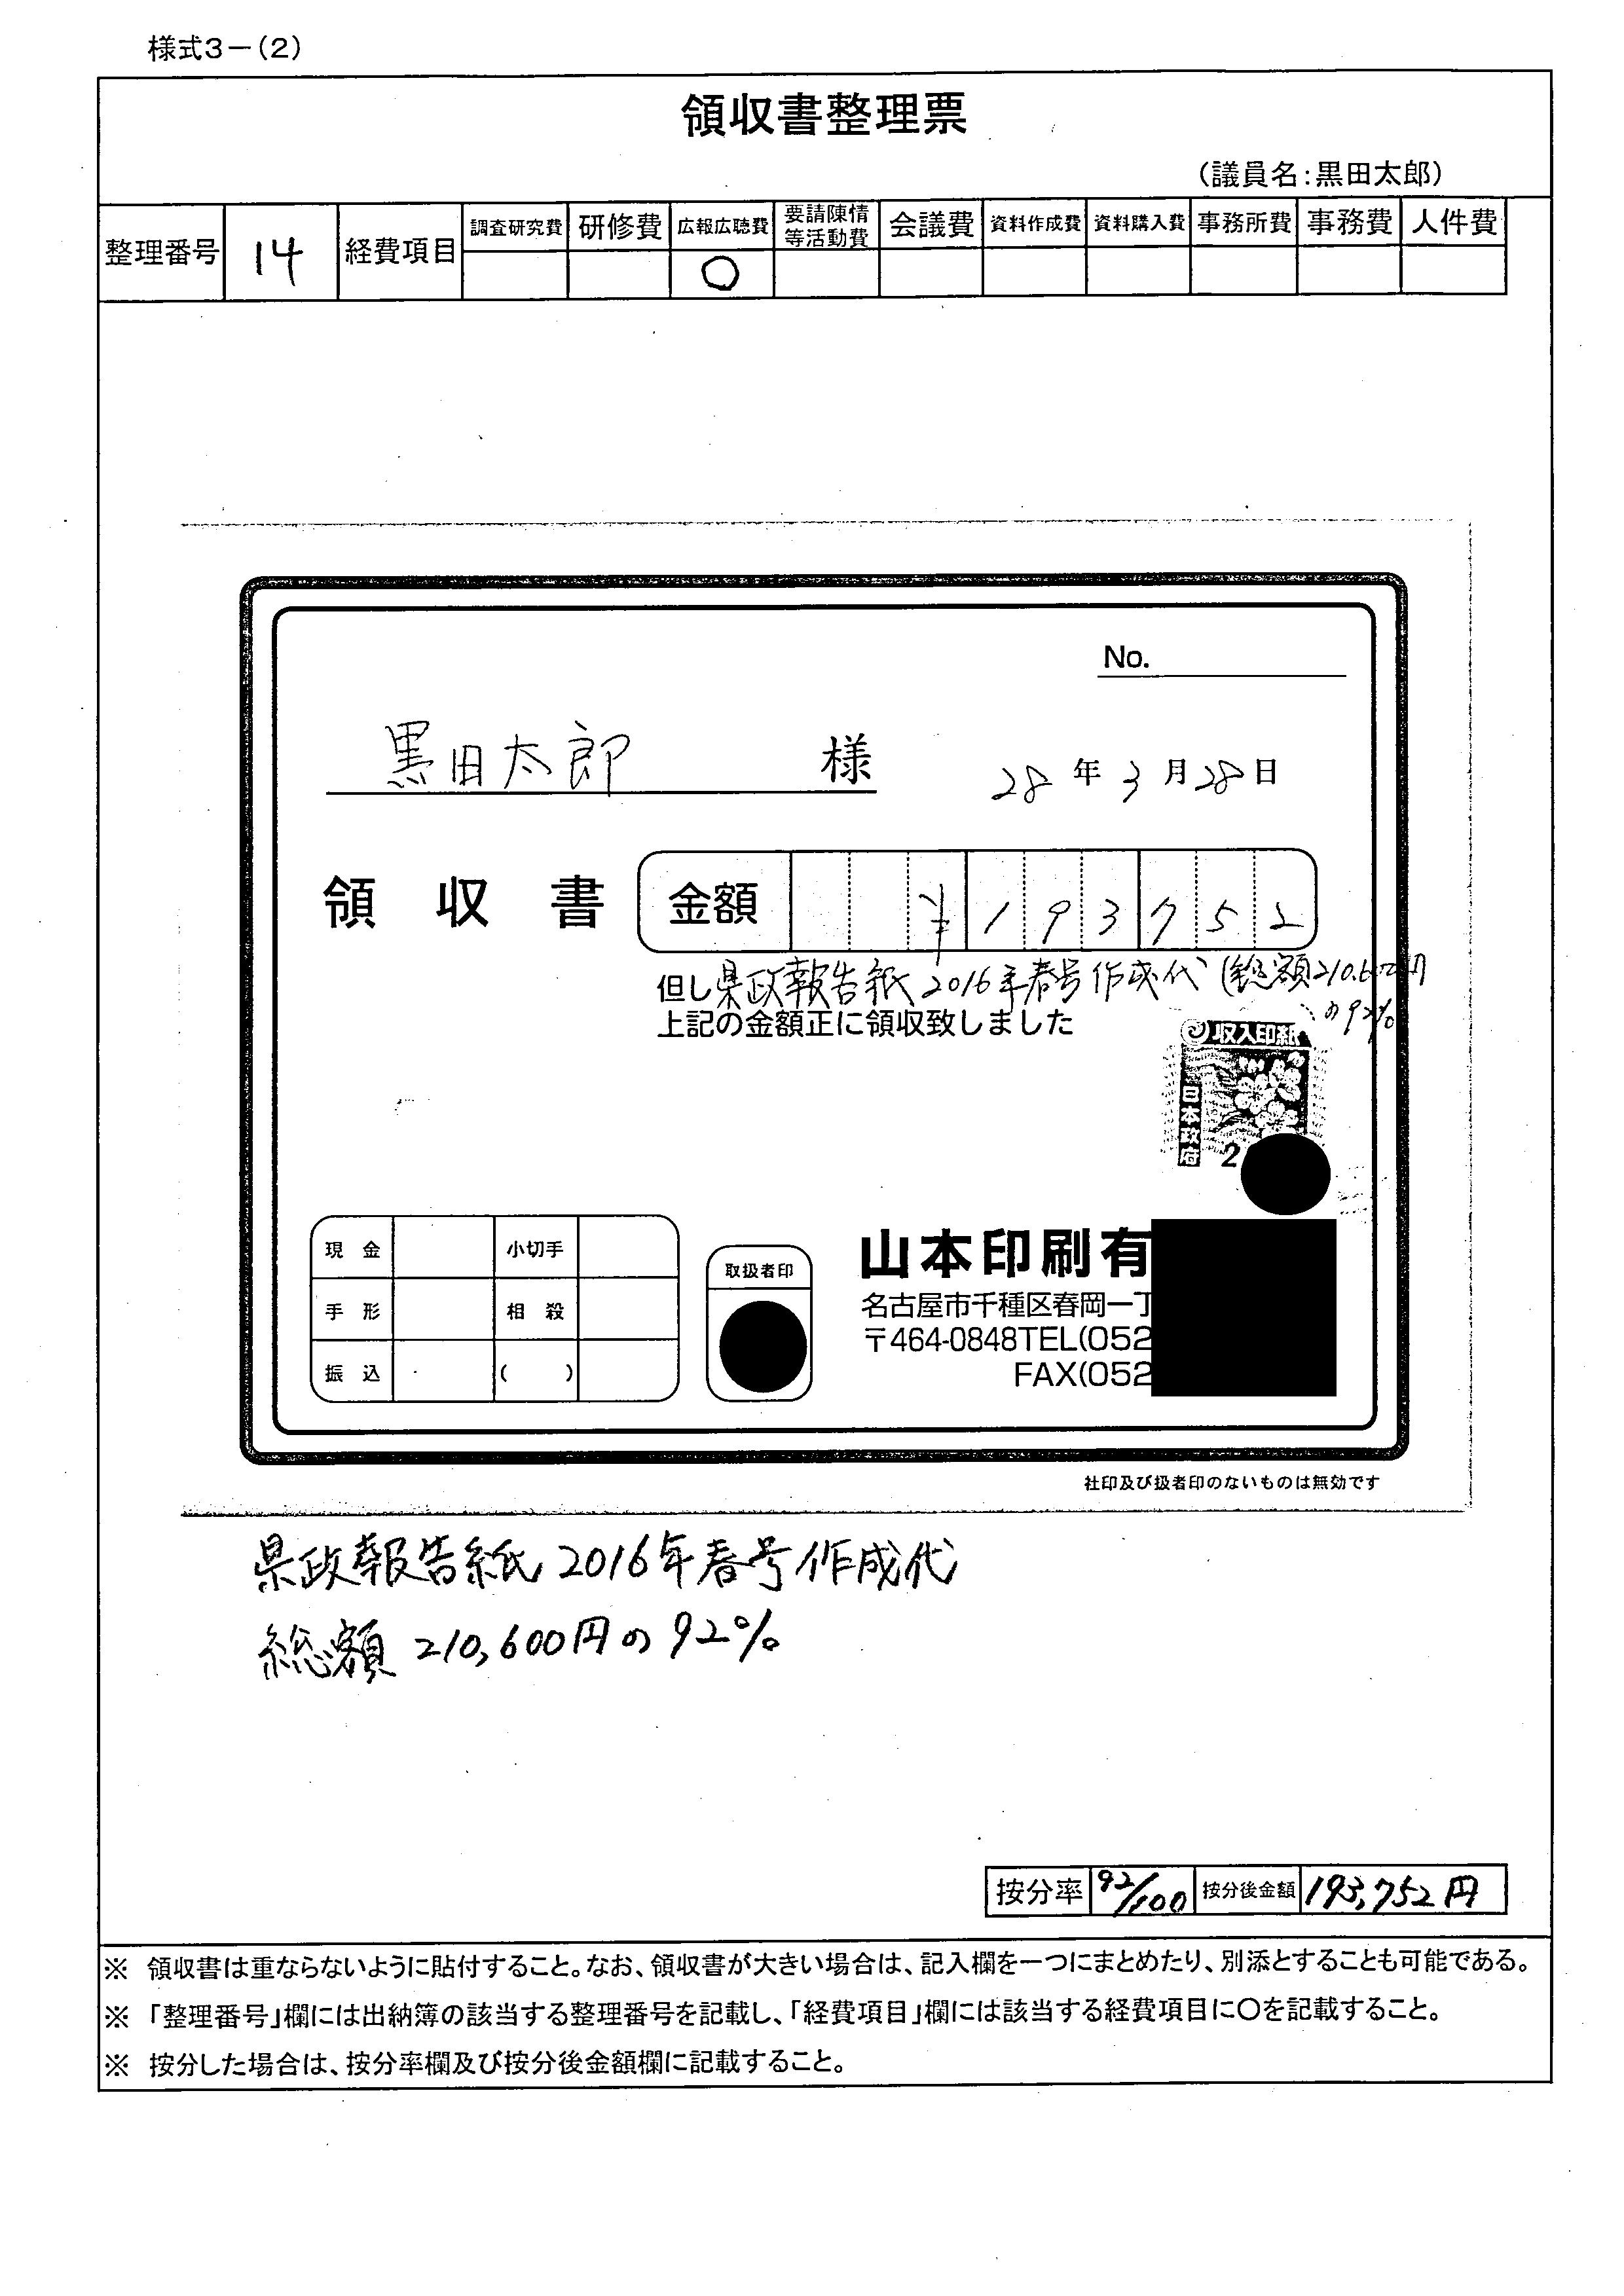 様式3－(2)
領収書整理票
(議員名:黒田太郎)
整理番号 14 経費項目 調査研究費 研修費 広報広聴費 要請陳情等活動費 会議費 資料作成費 資料購入費 事務所費 事務費 人件費
○
No.
黒田太郎 様 28年3月28日
領収書 金額 ¥193752
但し県政報告紙2016年春号作成代(総額210,600円
の92%
上記の金額正に領収致しました
収入印紙
日本政府
2
現金 小切手
手形 相殺
振込 ( )
取扱者印
山本印刷有
名古屋市千種区春岡一丁
〒464-0848TEL(052
FAX(052
社印及び扱者印のないものは無効です
県政報告紙2016年春号作成代
総額210,600円の92%
按分率 92/100 按分後金額 193,752円
※ 領収書は重ならないように貼付すること。なお、領収書が大きい場合は、記入欄を一つにまとめたり、別添とすることも可能である。
※ 「整理番号」欄には出納簿の該当する整理番号を記載し、「経費項目」欄には該当する経費項目に○を記載すること。
※ 按分した場合は、按分率欄及び按分後金額欄に記載すること。